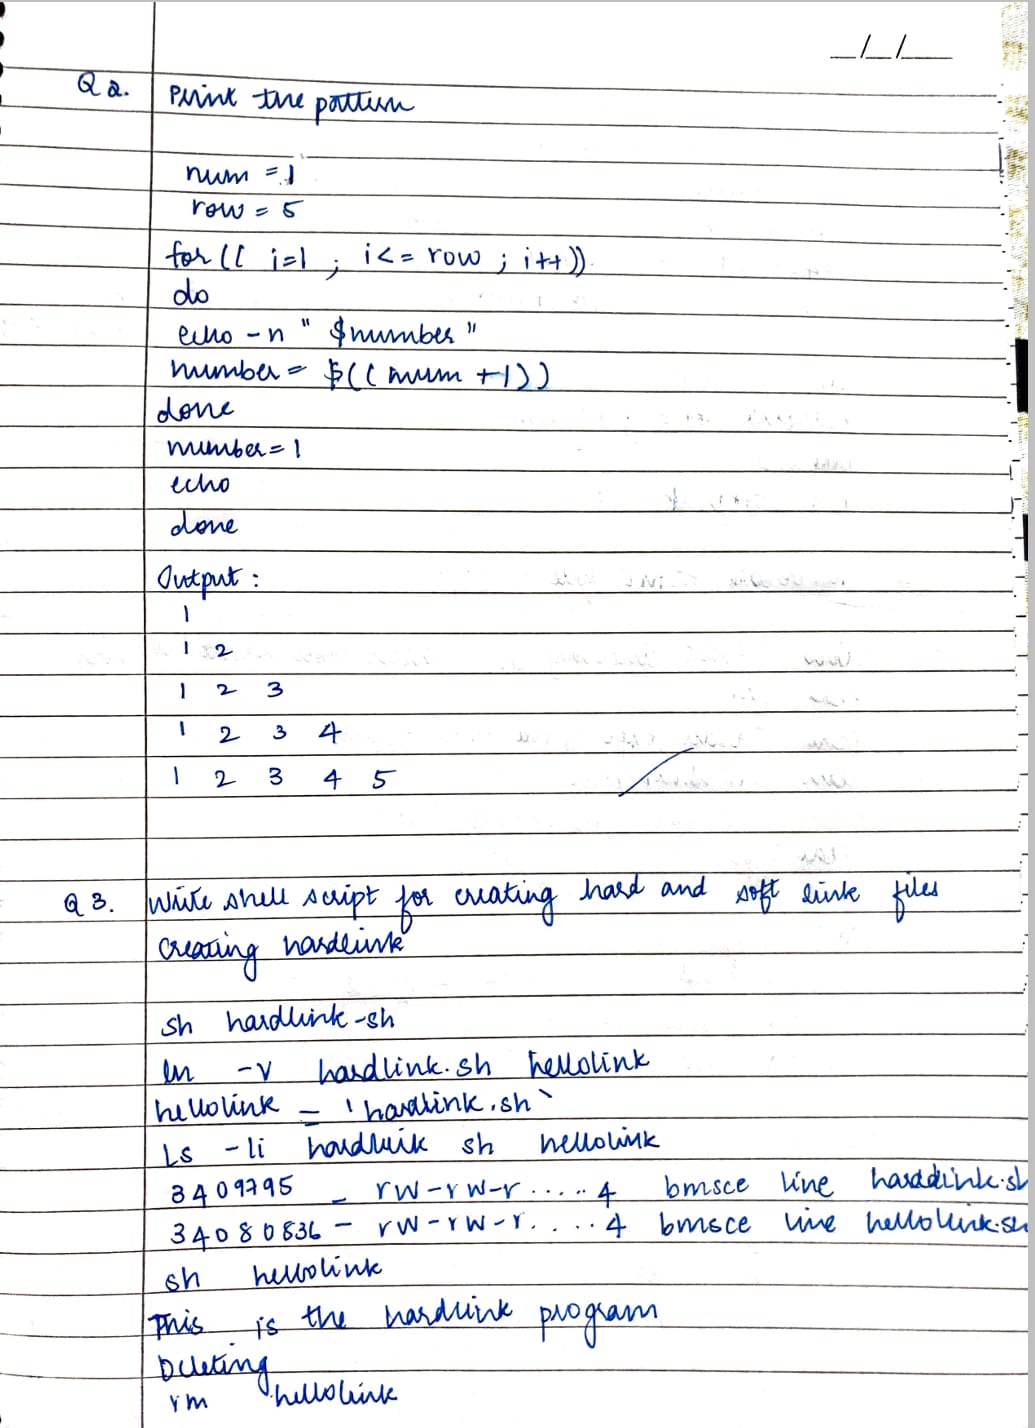 _/_/_
Q 2. Print the pattern
num = 1
row = 5
for (( i=1 ; i<= row ; i++))
do
echo -n " $number "
number = $(( num +1))
done
number = 1
echo
done
Output :
1
1 2
1 2 3
1 2 3 4
1 2 3 4 5
Q 3. Write shell script for creating hard and soft link files
Creating hardlink
sh hardlink-sh
ln -v hardlink.sh hellolink
hellolink = 'hardlink.sh`
Ls -li hardlink sh hellolink
3409795 - rw-rw-r ..... 4 bmsce line harddink.sh
34080836 - rw-rw-r. ... 4 bmsce line hellolink.sh
sh hellolink
This is the hardlink program
Deleting
rm hellolink